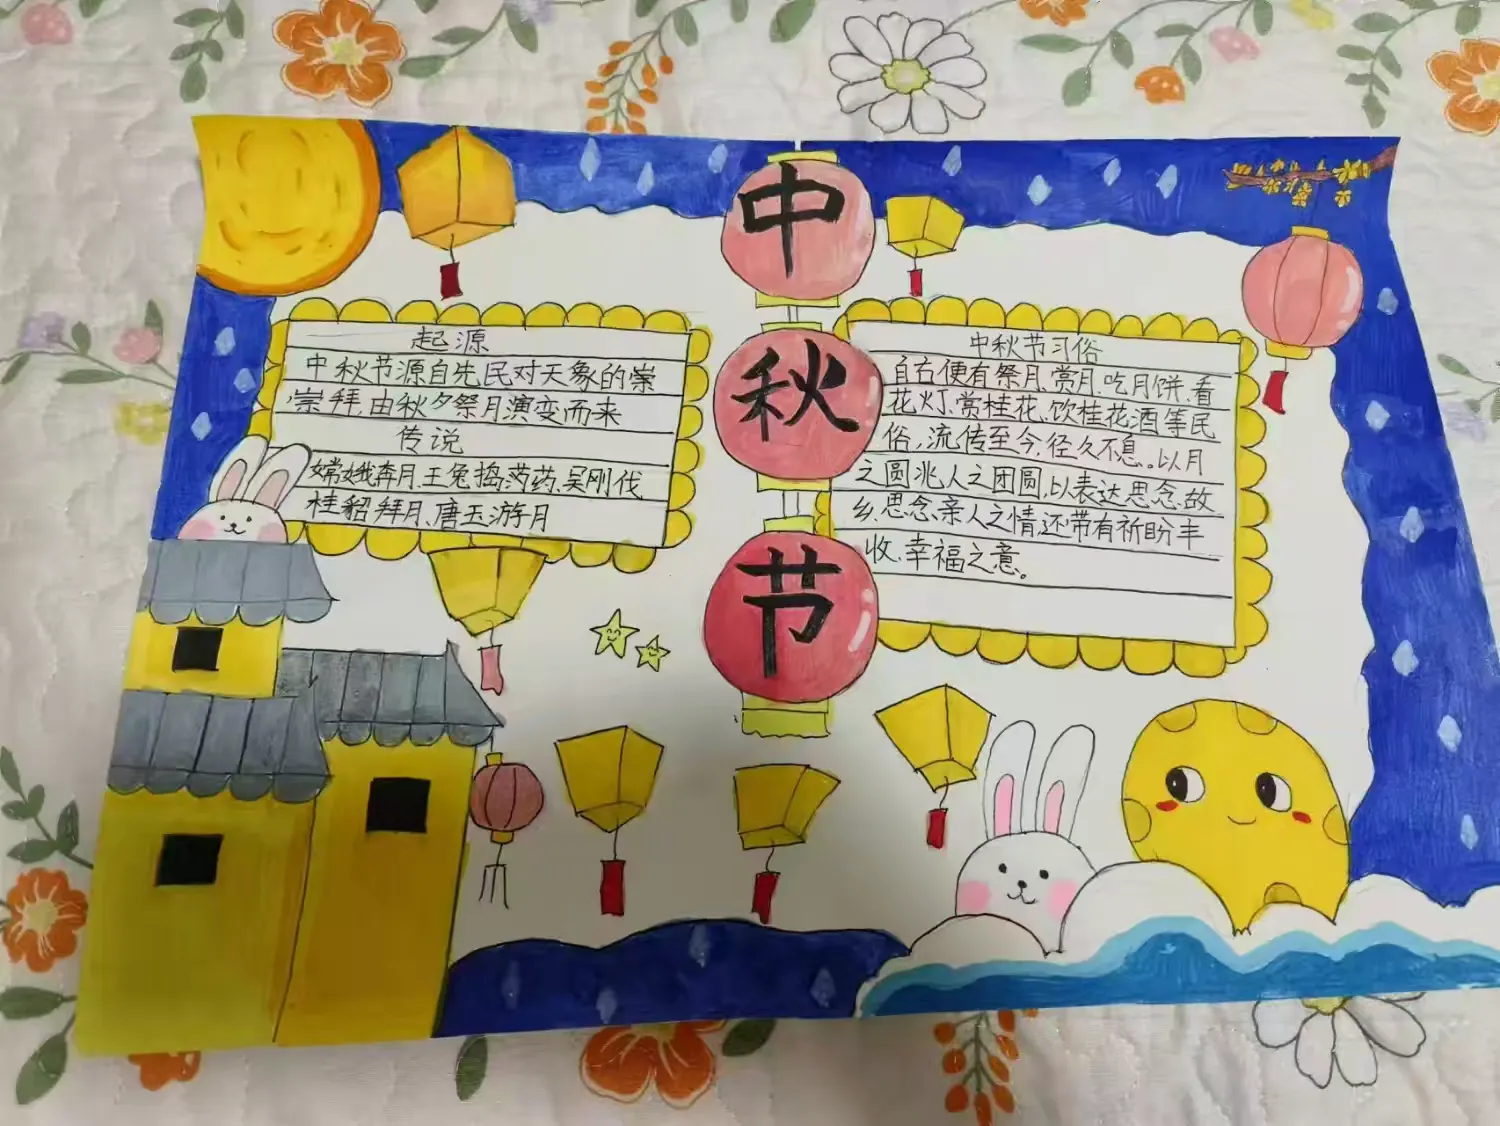 中
秋
节
起源
中秋节源自先民对天象的崇
崇拜,由秋夕祭月演变而来
传说
嫦娥奔月、玉兔捣药、吴刚伐
桂貂拜月、唐玉游月
中秋节习俗
自古便有祭月、赏月、吃月饼、看
花灯、赏桂花、饮桂花酒等民
俗,流传至今,径久不息。以月
之圆兆人之团圆,以表达思念故
乡,思念亲人之情,还带有祈盼丰
收、幸福之意。